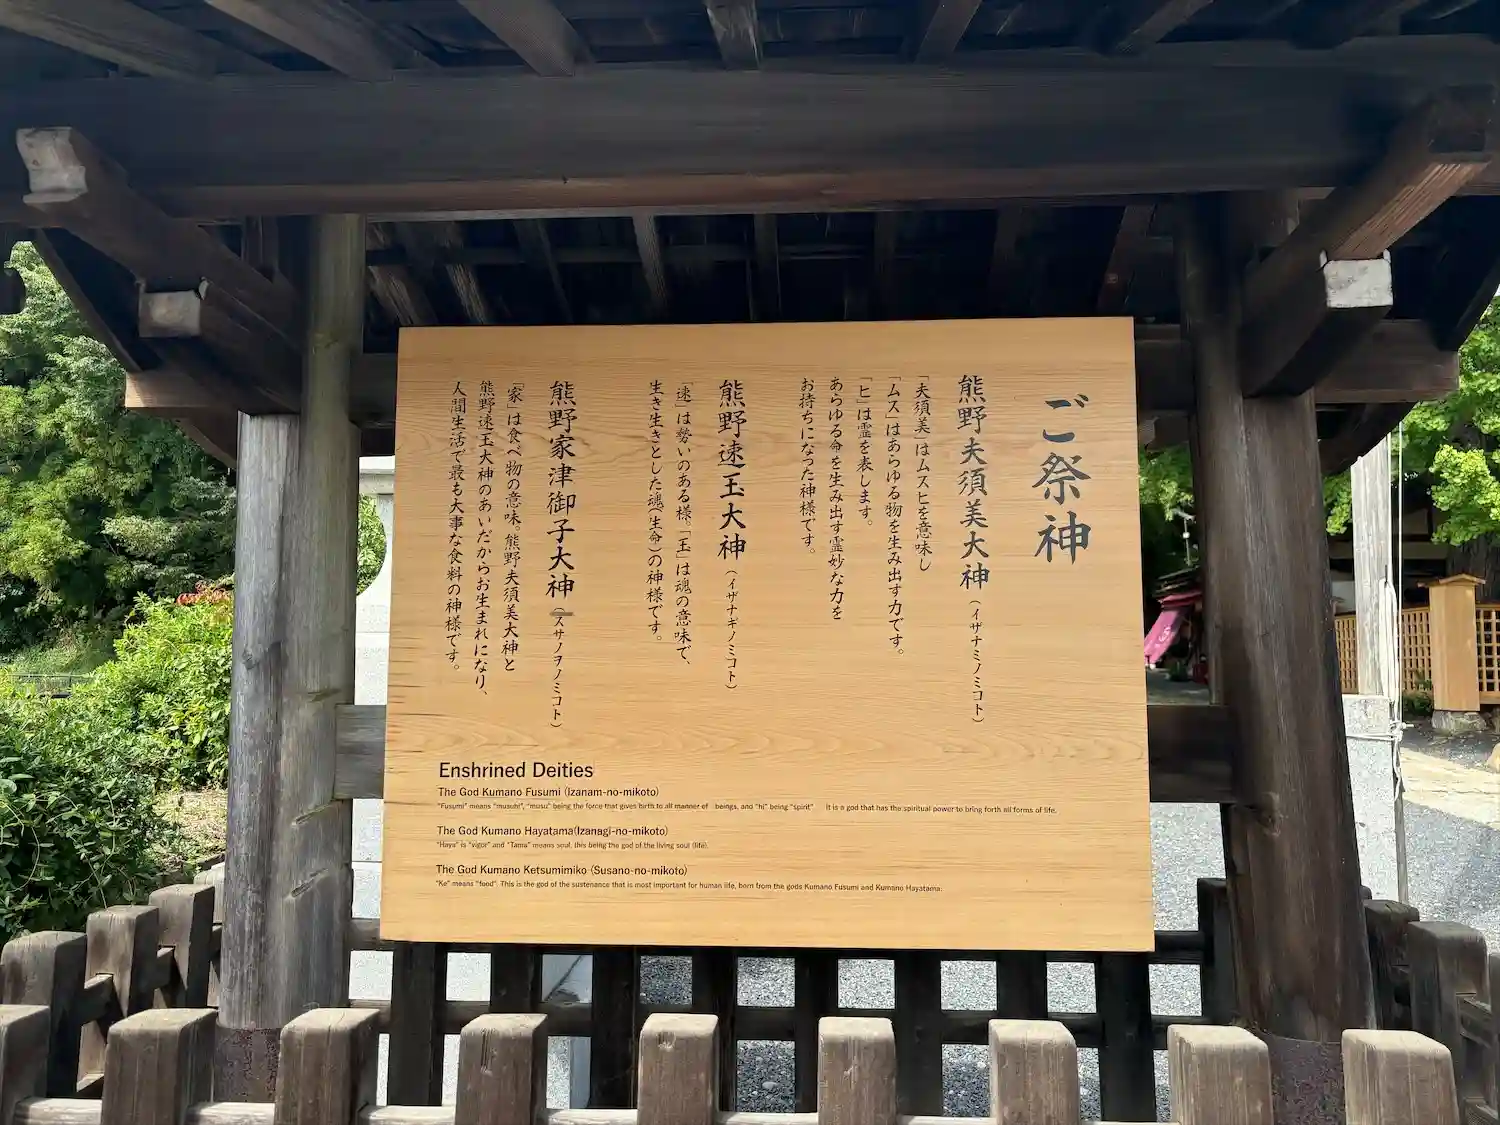 ご祭神
熊野夫須美大神（イザナミノミコト）
「夫須美」はムスヒを意味し
「ムス」はあらゆる物を生み出す力です。
「ヒ」は霊を表します。
あらゆる命を生み出す霊妙な力を
お持ちになった神様です。
熊野速玉大神（イザナギノミコト）
「速」は勢いのある様。「玉」は魂の意味で、
生き生きとした魂（生命）の神様です。
熊野家津御子大神（スサノヲノミコト）
「家」は食べ物の意味。熊野夫須美大神と
熊野速玉大神のあいだからお生まれになり、
人間生活で最も大事な食料の神様です。
Enshrined Deities
The God Kumano Fusumi (Izanam-no-mikoto)
"Fusumi" means "musuhi", "musu" being the force that gives birth to all manner of beings, and "hi" being "spirit" It is a god that has the spiritual power to bring forth all forms of life.
The God Kumano Hayatama(Izanagi-no-mikoto)
"Haya" is "vigor" and "Tama" means soul, this being the god of the living soul (life).
The God Kumano Ketsumimiko (Susano-no-mikoto)
"Ke" means "food". This is the god of the sustenance that is most important for human life, born from the gods Kumano Fusumi and Kumano Hayatama.